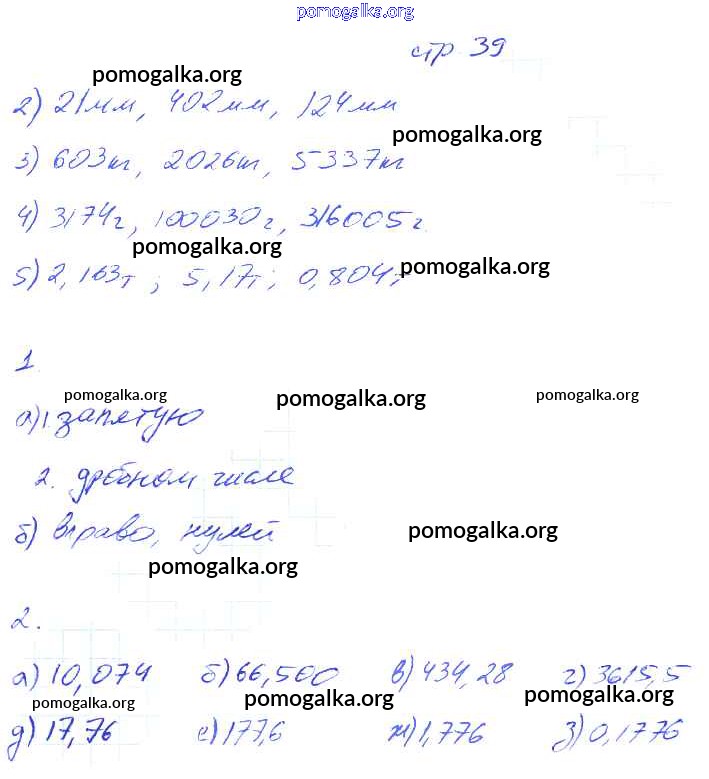 pomogalka.org
стр 39
pomogalka.org
2) 21мм, 402мм, 124мм
pomogalka.org
3) 603кг, 2026кг, 5337кг
4) 3174г, 100030г, 316005г.
pomogalka.org
pomogalka.org
5) 2,163т; 5,17т; 0,804т
1.
pomogalka.org pomogalka.org pomogalka.org
а) 1. запятую
2. дробном числе
б) вправо, нулей
pomogalka.org
pomogalka.org
2.
а) 10,074 б) 66,500 в) 434,28 г) 3615,5
pomogalka.org pomogalka.org pomogalka.org
д) 17,76 е) 177,6 ж) 1,776 з) 0,1776